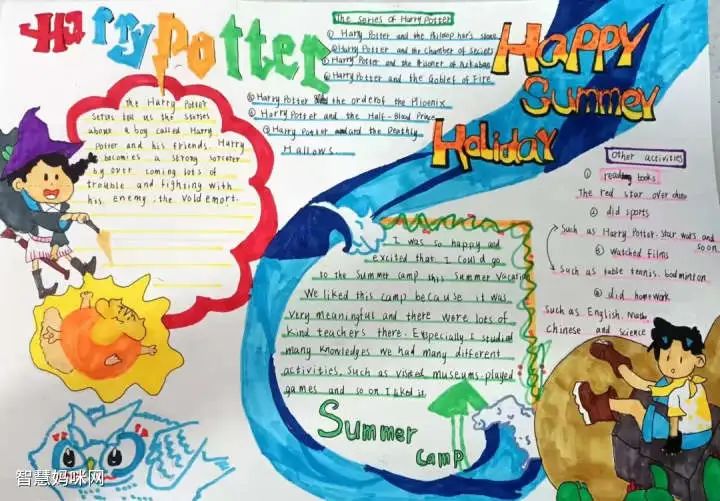 Harry Potter
The Harry Potter
series tell us the stories
about a boy called Harry
Potter and his friends. Harry
becomes a strong sorcerer
by over coming lots of
trouble and fighting with
his enemy, the Voldemort.
The Series of Harry Potter
① Harry Potter and the Philosopher's stone
② Harry Potter and the Chamber of Secrets
③ Harry Potter and the Prisoner of Azkaban
④ Harry Potter and the Goblet of Fire
⑤ Harry Potter and the order of the Phoenix
⑥ Harry Potter and the Half-Blood Prince
⑦ Harry Potter and the Deathly
Hallows.
Happy
Summer
Holiday
Other activities
① reading books
The red star over
② did sports
Such as Harry Potter. Star wars and
so on
③ watched films
Such as table tennis. badminton
④ did homework
Such as English. Math
chinese and science
I was so happy and
excited that I could go
to the Summer camp this Summer Vacation
We liked this camp because it was
very meaningful and there were lots of
kind teachers there. Especially I studied
many knowledges we had many different
activities. Such as visited museums. played
games and so on I liked it
Summer
Camp
智慧妈咪网